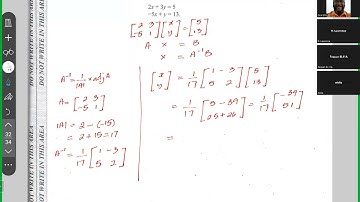 2x + 3y = 5
-5x + y = 13.
[2 3 -5 1] [x y] = [5 13]
A x = B
x = A⁻¹B
A⁻¹ = 1/|A| × adj A
A = [2 3 -5 1]
|A| = 2 - (-15)
= 2 + 15 = 17
A⁻¹ = 1/17 [1 -3 5 2]
[x y] = 1/17 [1 -3 5 2] [5 13]
= 1/17 [5 - 39 25 + 26] = 1/17 [-39 51]
=
DO NOT WRITE IN THIS AREA
DO NOT WRITE IN THIS AREA
NOT WRITE IN THIS AREA
32
34